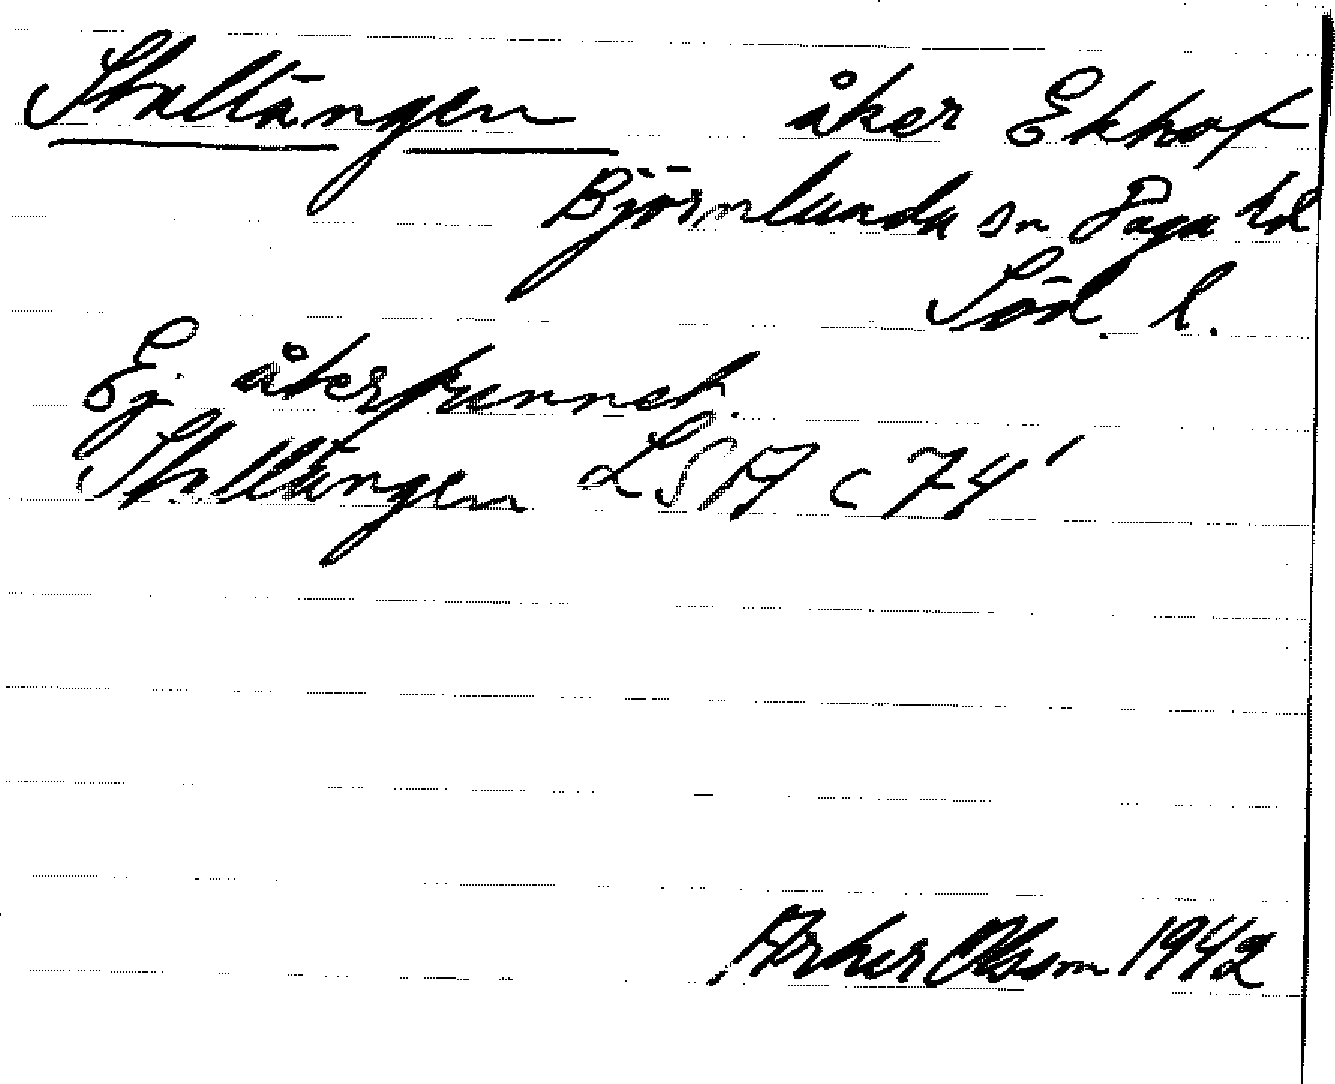 Stallängen åker Ekhof
Björnlunda sn Daga hd
Söd. l.
Ej återfunnet.
Stallängen LSA C 74¹
Arthur Olsson 1942